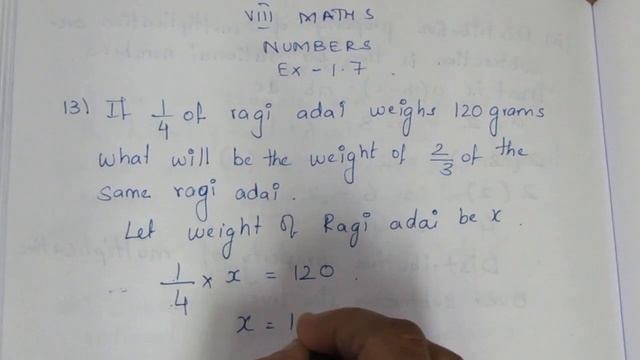 VIII MATHS
NUMBERS
Ex - 1.7
13) If 1/4 of ragi adai weighs 120 grams
what will be the weight of 2/3 of the
same ragi adai.
Let weight of Ragi adai be x.
1/4 × x = 120.
x = 1